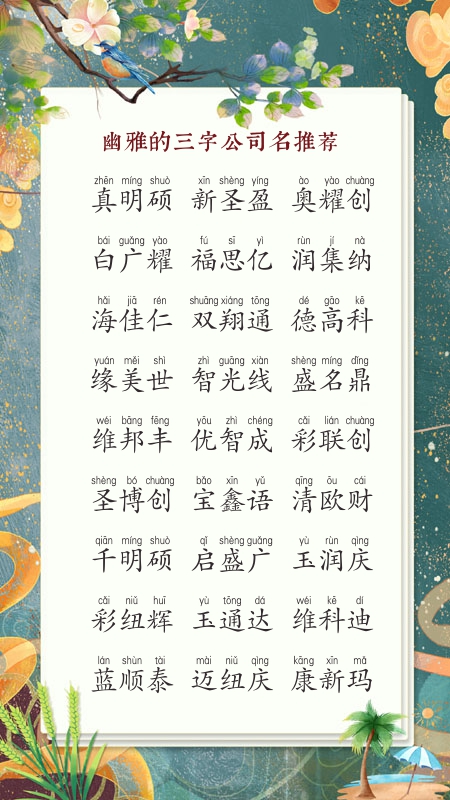 幽雅的三字公司名推荐
zhēn míng shuò xīn shèng yíng ào yào chuàng
真明硕 新圣盈 奥耀创
bái guǎng yào fú sī yì rùn jí nà
白广耀 福思亿 润集纳
hǎi jiā rén shuāng xiáng tōng dé gāo kē
海佳仁 双翔通 德高科
yuán měi shì zhì guāng xiàn shèng míng dǐng
缘美世 智光线 盛名鼎
wéi bāng fēng yōu zhì chéng cǎi lián chuàng
维邦丰 优智成 彩联创
shèng bó chuàng bǎo xīn yǔ qīng ōu cái
圣博创 宝鑫语 清欧财
qiān míng shuò qǐ shèng guǎng yù rùn qìng
千明硕 启盛广 玉润庆
cǎi niǔ huī yù tōng dá wéi kē dí
彩纽辉 玉通达 维科迪
lán shùn tài mài niǔ qìng kāng xīn mǎ
蓝顺泰 迈纽庆 康新玛